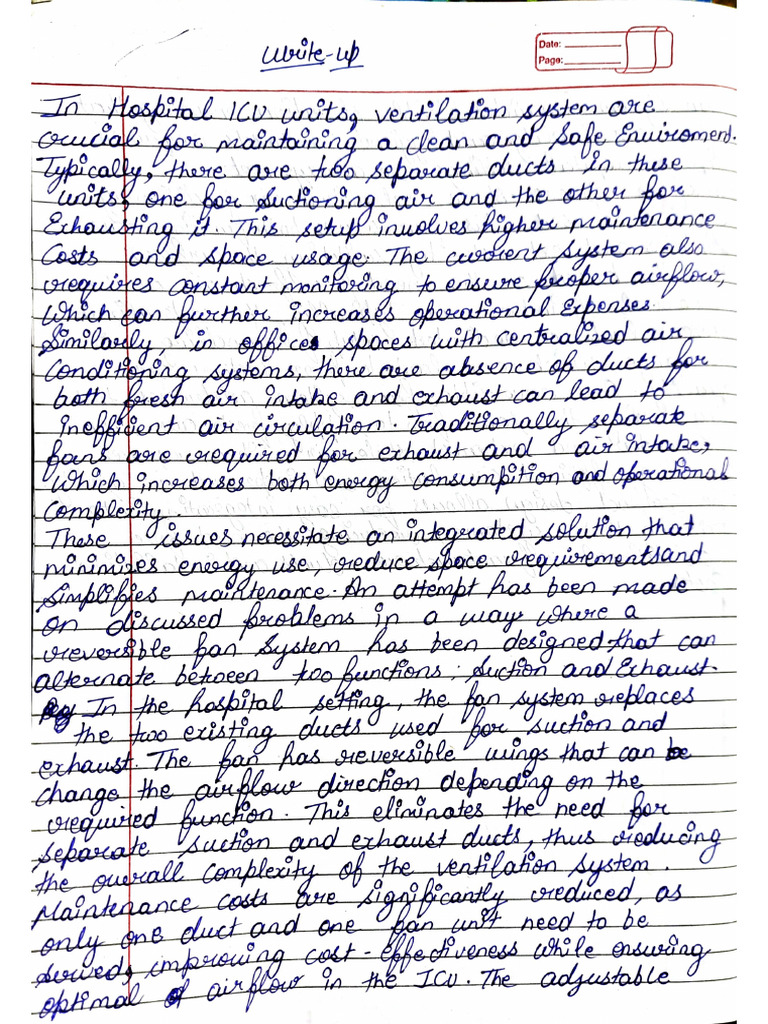 Write-up
Date:
Page:
In Hospital ICU units, ventilation system are
crucial for maintaining a clean and safe Enviroment.
Typically, there are two separate ducts in these
units, one for suctioning air and the other for
Exhausting it. This setup involves higher maintenance
Costs and space usage. The current system also
requires constant monitoring to ensure proper airflow,
which can further increases operational Expenses.
Similarly, in offices spaces with centralized air
Conditioning systems, there are absence of ducts for
both fresh air intake and exhaust can lead to
inefficient air circulation. Traditionally separate
fans are required for exhaust and air intake,
Which increases both energy consumpition and operational
Complexity.
These issues necessitate an integrated solution that
minimizes energy use, reduce space requirements and
simplifies maintenance. An attempt has been made
on discussed problems in a way where a
reversible fan system has been designed that can
alternate between two functions; Suction and Exhaust.
In the hospital setting, the fan system replaces
the two existing ducts used for suction and
exhaust. The fan has reversible wings that can be
change the airflow direction depending on the
required function. This eliminates the need for
separate suction and exhaust ducts, thus reducing
the overall complexity of the ventilation system.
Maintenance costs are significantly reduced, as
only one duct and one fan unit need to be
served, improving cost-effectiveness while ensuring
optimal airflow in the ICU. The adjustable